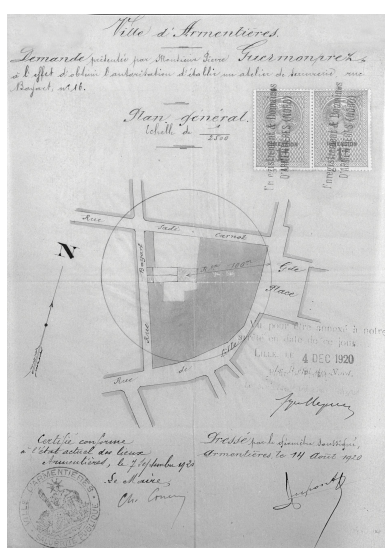 Ville d'Armentières.
Demande présentée par Monsieur Pierre Guermonprez
à l'effet d'obtenir l'autorisation d'établir un atelier de serrurerie rue
Bayart, n° 16.
Plan général.
Echelle de 1/2500
Enregistrement & Domaines
D'ARMENTIERES (NORD)
Enregistrement & Domaines
D'ARMENTIERES (NORD)
N
Rue Sadi Carnot
Rue Bayart
Gde Place
Rue de Lille
Vu pour être annexé à notre
en date de ce jour
LILLE, LE 4 DEC 1920
Certifié conforme
à l'état actuel des lieux
Armentières, le 7 septembre 1920
Le Maire,
Dressé par le soussigné,
Armentières, le 14 Août 1920
Dupont